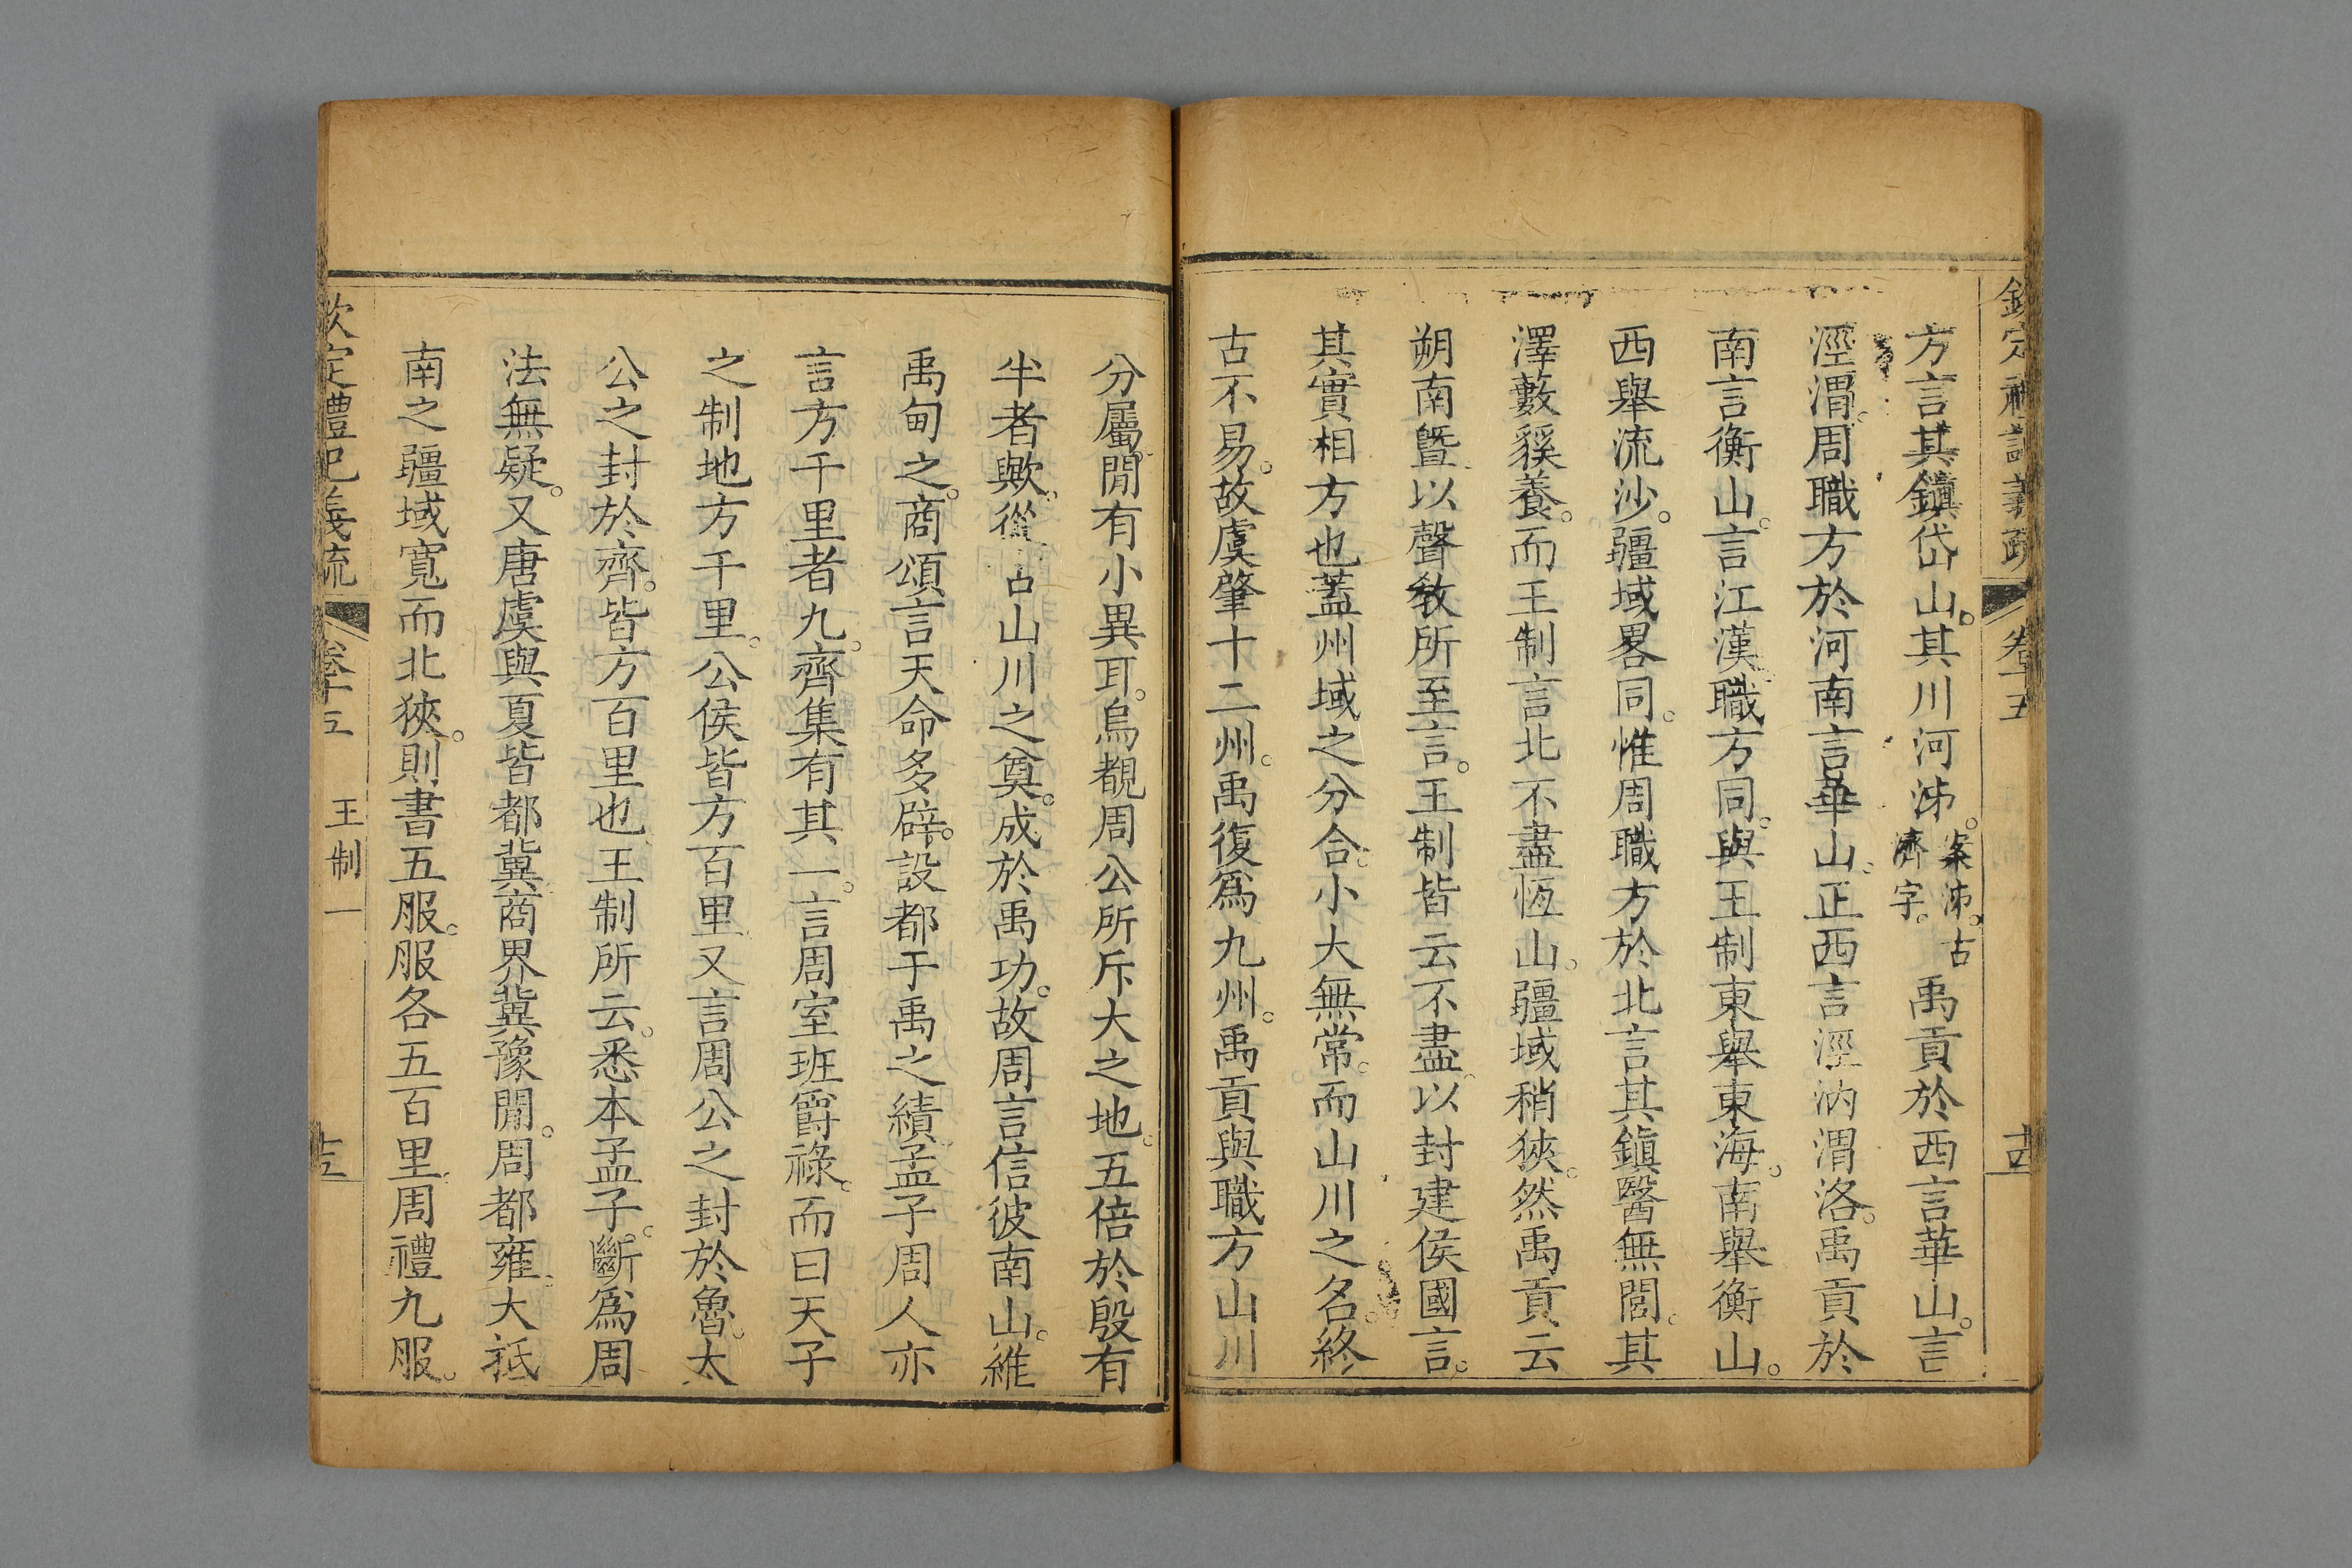 欽定禮記義疏 卷十五 十四
方言其鎮岱山。其川河泲。案泲。古濟字。禹貢於西言華山。言
涇渭。周職方於河南言華山。正西言涇汭渭洛。禹貢於
南言衡山。言江漢。職方同。與王制東舉東海。南舉衡山。
西舉流沙。疆域畧同。惟周職方於北言其鎮醫無閭。其
澤藪貕養。而王制言北不盡恆山。疆域稍狹。然禹貢云
朔南曁。以聲敎所至言。王制皆云不盡。以封建侯國言。
其實相方也。蓋州域之分合。小大無常。而山川之名。終
古不易。故虞肇十二州。禹復爲九州。禹貢與職方山川
分屬。閒有小異耳。烏覩周公所斥大之地。五倍於殷有
半者歟。從古山川之奠。成於禹功。故周言信彼南山。維
禹甸之。商頌言天命多辟。設都于禹之績。孟子周人亦
言方千里者九。齊集有其一。言周室班爵祿。而曰天子
之制地方千里。公侯皆方百里。又言周公之封於魯。太
公之封於齊。皆方百里也。王制所云。悉本孟子。斷爲周
法無疑。又唐虞與夏皆都冀。商界冀豫閒。周都雍。大衹
南之疆域寬而北狹。則書五服。服各五百里。周禮九服。
欽定禮記義疏 卷十五 王制一 十五